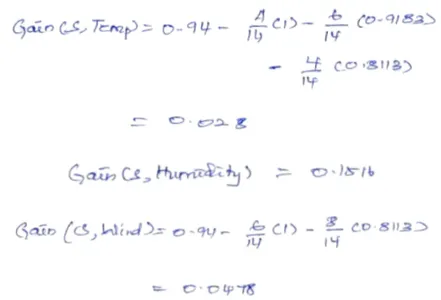 Gain(S, Temp) = 0.94 - 4/14 (1) - 6/14 (0.9183)
- 4/14 (0.8113)
= 0.028
Gain(S, Humidity) = 0.1516
Gain(S, Wind) = 0.94 - 6/14 (1) - 8/14 (0.8113)
= 0.0478